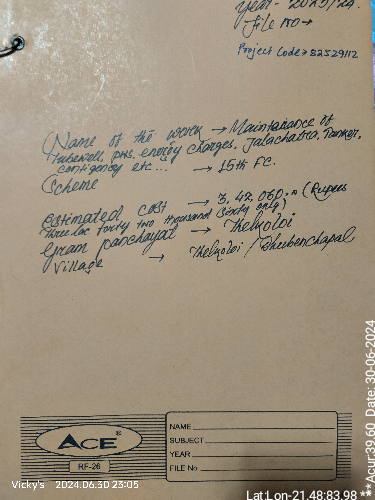 Year - 2023/24.
File No →
Project Code → 82529112
(Name of the work → Maintanance of
tubewell, pws, energy charges, Jalachatra, Tanker,
contigency etc...
Scheme → 15th FC.
Estimated cost → 3,42,060.= (Rupees
Three lac forty two thousand Sixty only)
Gram panchayat → Thelkoloi
Village → Thelkoloi / Dhubenchapal
ACE®
RF-26
NAME
SUBJECT
YEAR
FILE No
Vicky's 2024.06.30 23:05
Lat:Lon-21.48:83.98
**Acur:39.60 Date: 30-06-2024